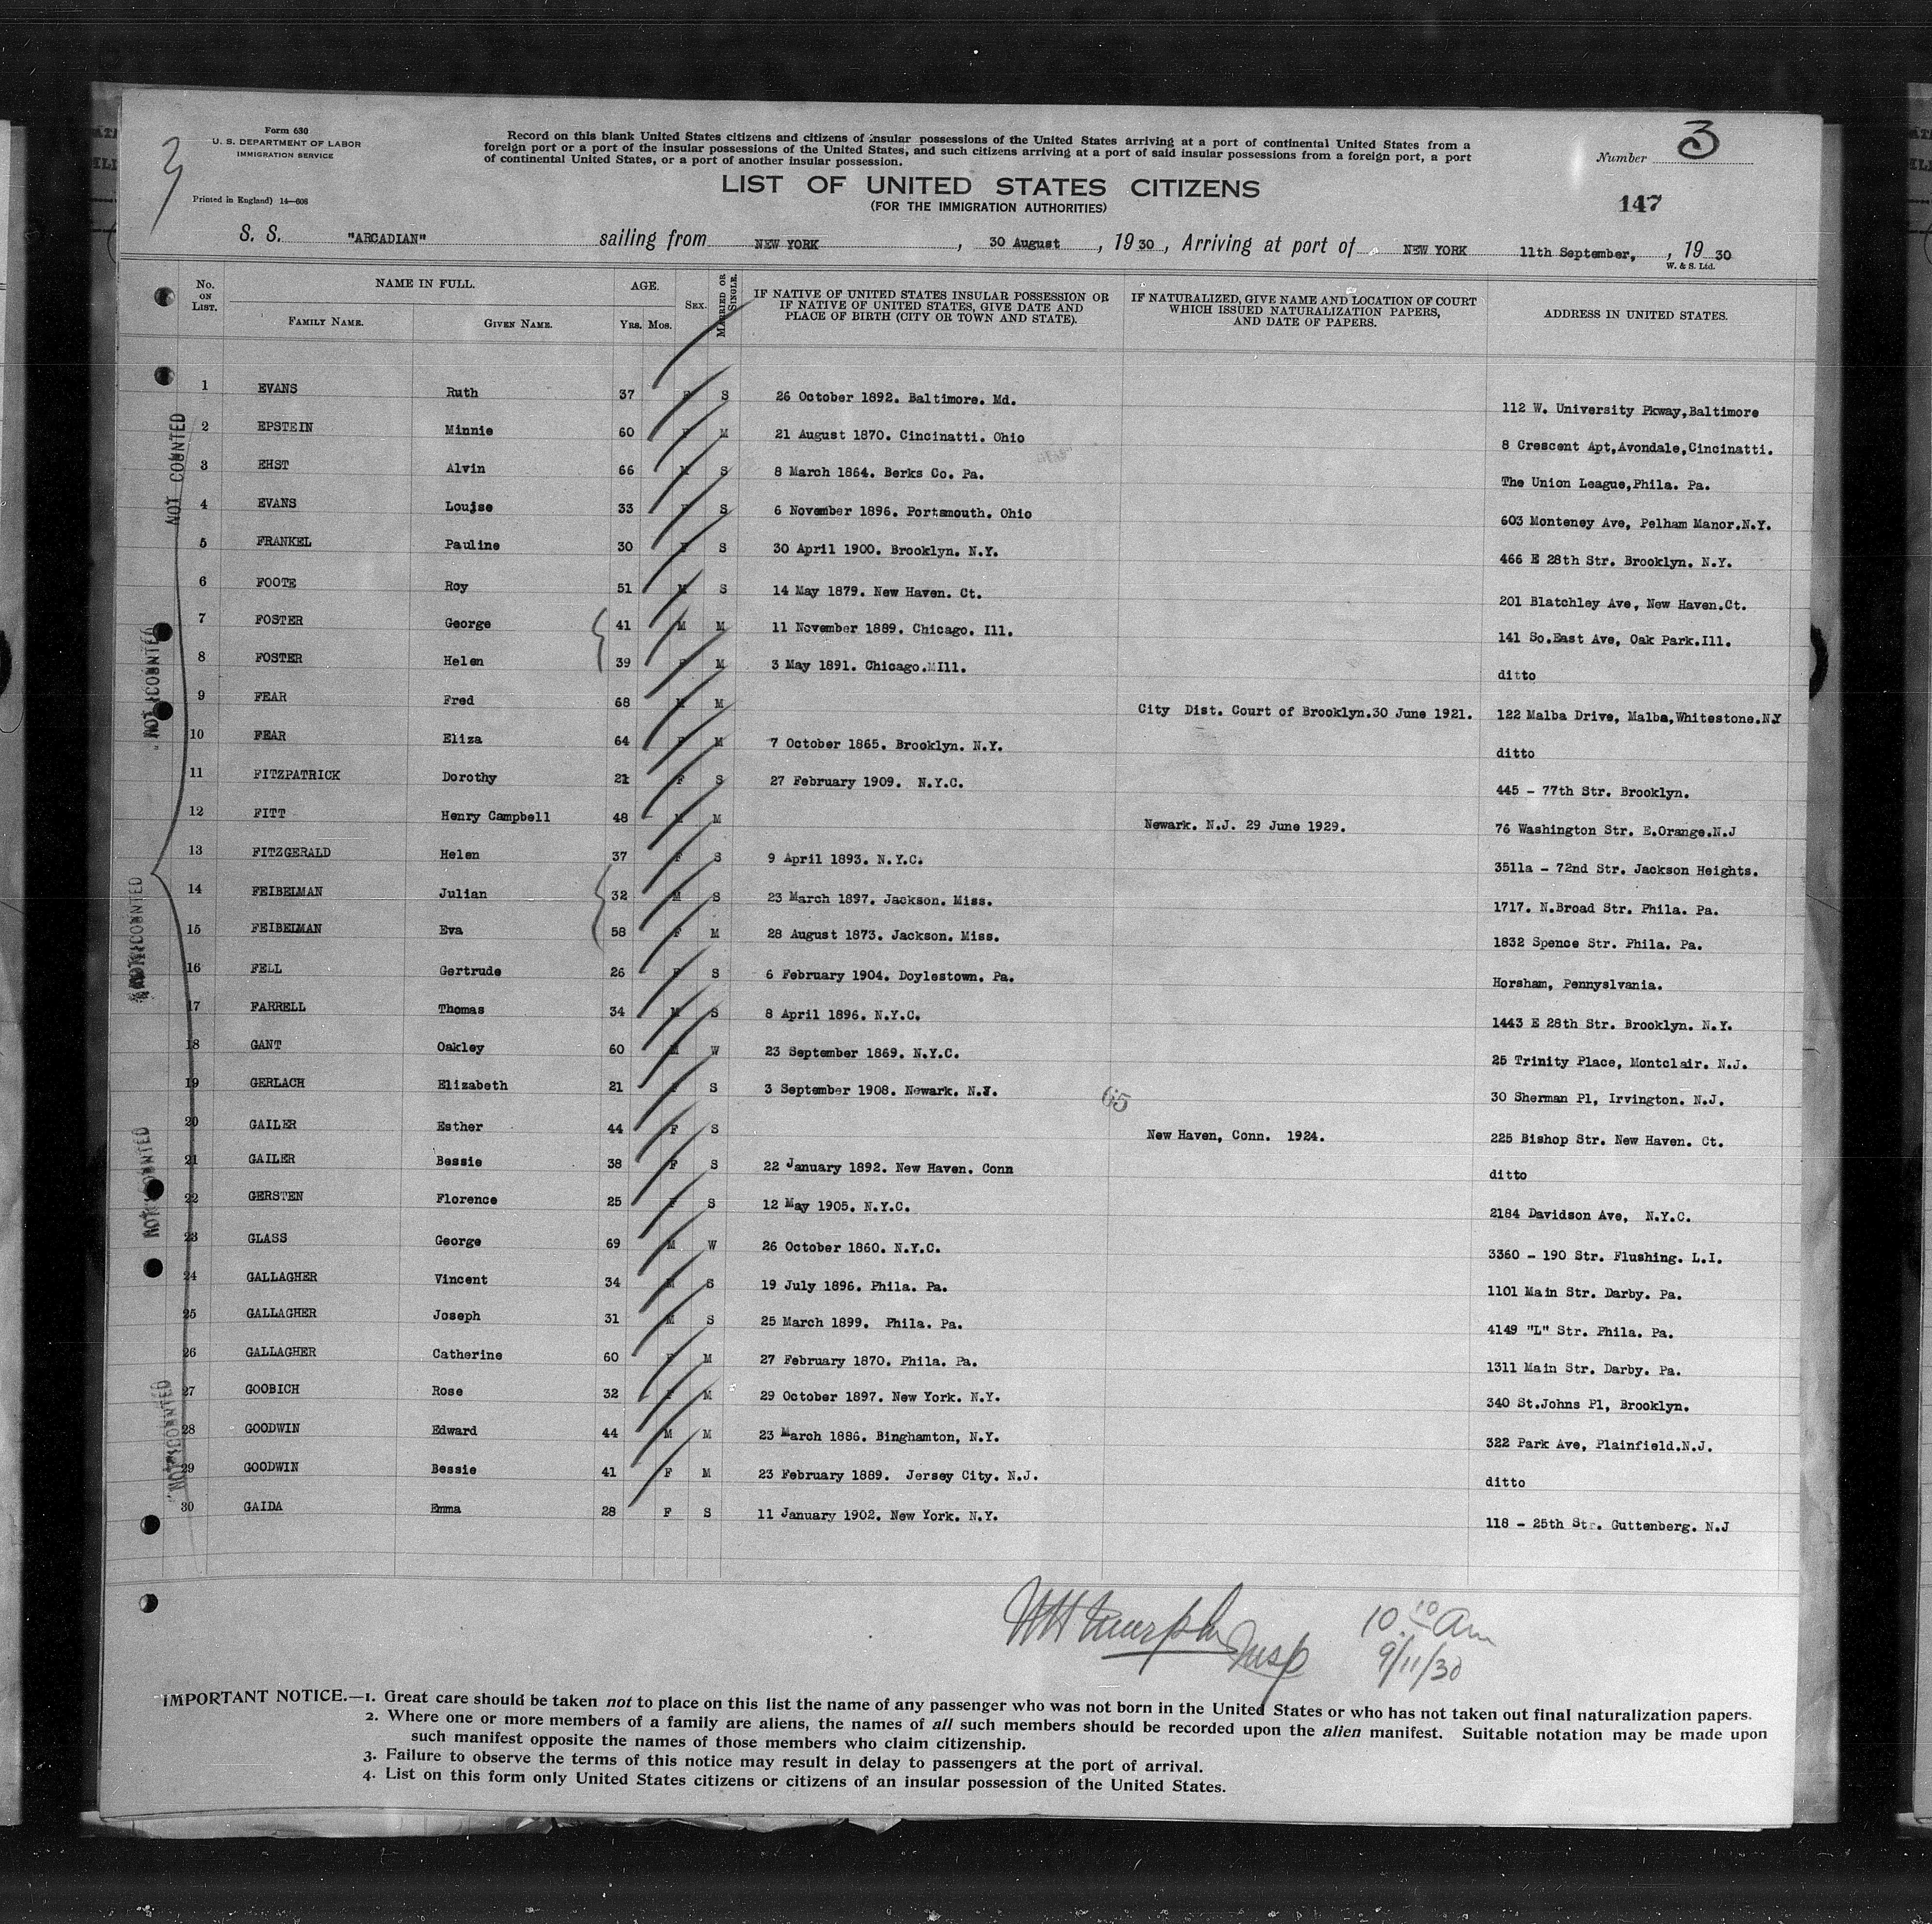 Form 630
U. S. DEPARTMENT OF LABOR
IMMIGRATION SERVICE
Printed in England) 14—608
Record on this blank United States citizens and citizens of insular possessions of the United States arriving at a port of continental United States from a
foreign port or a port of the insular possessions of the United States, and such citizens arriving at a port of said insular possessions from a foreign port, a port
of continental United States, or a port of another insular possession.
Number 3
LIST OF UNITED STATES CITIZENS
(FOR THE IMMIGRATION AUTHORITIES)
147
S. S. "ARCADIAN" sailing from NEW YORK, 30 August, 1930, Arriving at port of NEW YORK 11th September, , 1930
W. & S. Ltd.
No. ON LIST. NAME IN FULL. FAMILY NAME. GIVEN NAME. AGE. YRS. MOS. SEX. MARRIED OR SINGLE. IF NATIVE OF UNITED STATES INSULAR POSSESSION OR IF NATIVE OF UNITED STATES, GIVE DATE AND PLACE OF BIRTH (CITY OR TOWN AND STATE). IF NATURALIZED, GIVE NAME AND LOCATION OF COURT WHICH ISSUED NATURALIZATION PAPERS, AND DATE OF PAPERS. ADDRESS IN UNITED STATES.
1 EVANS Ruth 37 F S 26 October 1892. Baltimore. Md. 112 W. University Pkway,Baltimore
2 EPSTEIN Minnie 60 F M 21 August 1870. Cincinatti. Ohio 8 Crescent Apt,Avondale,Cincinatti.
3 EHST Alvin 66 M S 8 March 1864. Berks Co. Pa. The Union League,Phila. Pa.
4 EVANS Louise 33 F S 6 November 1896. Portsmouth. Ohio 603 Monteney Ave, Pelham Manor.N.Y.
5 FRANKEL Pauline 30 F S 30 April 1900. Brooklyn. N.Y. 466 E 28th Str. Brooklyn. N.Y.
6 FOOTE Roy 51 M S 14 May 1879. New Haven. Ct. 201 Blatchley Ave, New Haven.Ct.
7 FOSTER George 41 M M 11 November 1889. Chicago. Ill. 141 So.East Ave, Oak Park.Ill.
8 FOSTER Helen 39 F M 3 May 1891. Chicago. Ill. ditto
9 FEAR Fred 68 M M City Dist. Court of Brooklyn.30 June 1921. 122 Malba Drive, Malba,Whitestone.N.Y
10 FEAR Eliza 64 F M 7 October 1865. Brooklyn. N.Y. ditto
11 FITZPATRICK Dorothy 21 F S 27 February 1909. N.Y.C. 445 - 77th Str. Brooklyn.
12 FITT Henry Campbell 48 M M Newark. N.J. 29 June 1929. 76 Washington Str. E.Orange.N.J
13 FITZGERALD Helen 37 F S 9 April 1893. N.Y.C. 3511a - 72nd Str. Jackson Heights.
14 FEIBELMAN Julian 32 M S 23 March 1897. Jackson. Miss. 1717. N.Broad Str. Phila. Pa.
15 FEIBELMAN Eva 58 F M 28 August 1873. Jackson. Miss. 1832 Spence Str. Phila. Pa.
16 FELL Gertrude 26 F S 6 February 1904. Doylestown. Pa. Horsham, Pennyslvania.
17 FARRELL Thomas 34 M S 8 April 1896. N.Y.C. 1443 E 28th Str. Brooklyn. N.Y.
18 GANT Oakley 60 M W 23 September 1869. N.Y.C. 25 Trinity Place, Montclair. N.J.
19 GERLACH Elizabeth 21 F S 3 September 1908. Newark. N.J. 30 Sherman Pl, Irvington. N.J.
65
20 GAILER Esther 44 F S New Haven, Conn. 1924. 225 Bishop Str. New Haven. Ct.
21 GAILER Bessie 38 F S 22 January 1892. New Haven. Conn ditto
22 GERSTEN Florence 25 F S 12 May 1905. N.Y.C. 2184 Davidson Ave, N.Y.C.
23 GLASS George 69 M W 26 October 1860. N.Y.C. 3360 - 190 Str. Flushing. L.I.
24 GALLAGHER Vincent 34 M S 19 July 1896. Phila. Pa. 1101 Main Str. Darby. Pa.
25 GALLAGHER Joseph 31 M S 25 March 1899. Phila. Pa. 4149 "L" Str. Phila. Pa.
26 GALLAGHER Catherine 60 F M 27 February 1870. Phila. Pa. 1311 Main Str. Darby. Pa.
27 GOOBICH Rose 32 F M 29 October 1897. New York. N.Y. 340 St.Johns Pl, Brooklyn.
28 GOODWIN Edward 44 M M 23 March 1886. Binghamton, N.Y. 322 Park Ave, Plainfield.N.J.
29 GOODWIN Bessie 41 F M 23 February 1889. Jersey City. N.J. ditto
30 GAIDA Emma 28 F S 11 January 1902. New York. N.Y. 118 - 25th Str. Guttenberg. N.J
NOT COUNTED
NOT COUNTED
NOT COUNTED
NOT COUNTED
NOT COUNTED
WH Murphy Insp 10.10 Am
9/11/30
IMPORTANT NOTICE.—1. Great care should be taken not to place on this list the name of any passenger who was not born in the United States or who has not taken out final naturalization papers.
2. Where one or more members of a family are aliens, the names of all such members should be recorded upon the alien manifest. Suitable notation may be made upon
such manifest opposite the names of those members who claim citizenship.
3. Failure to observe the terms of this notice may result in delay to passengers at the port of arrival.
4. List on this form only United States citizens or citizens of an insular possession of the United States.